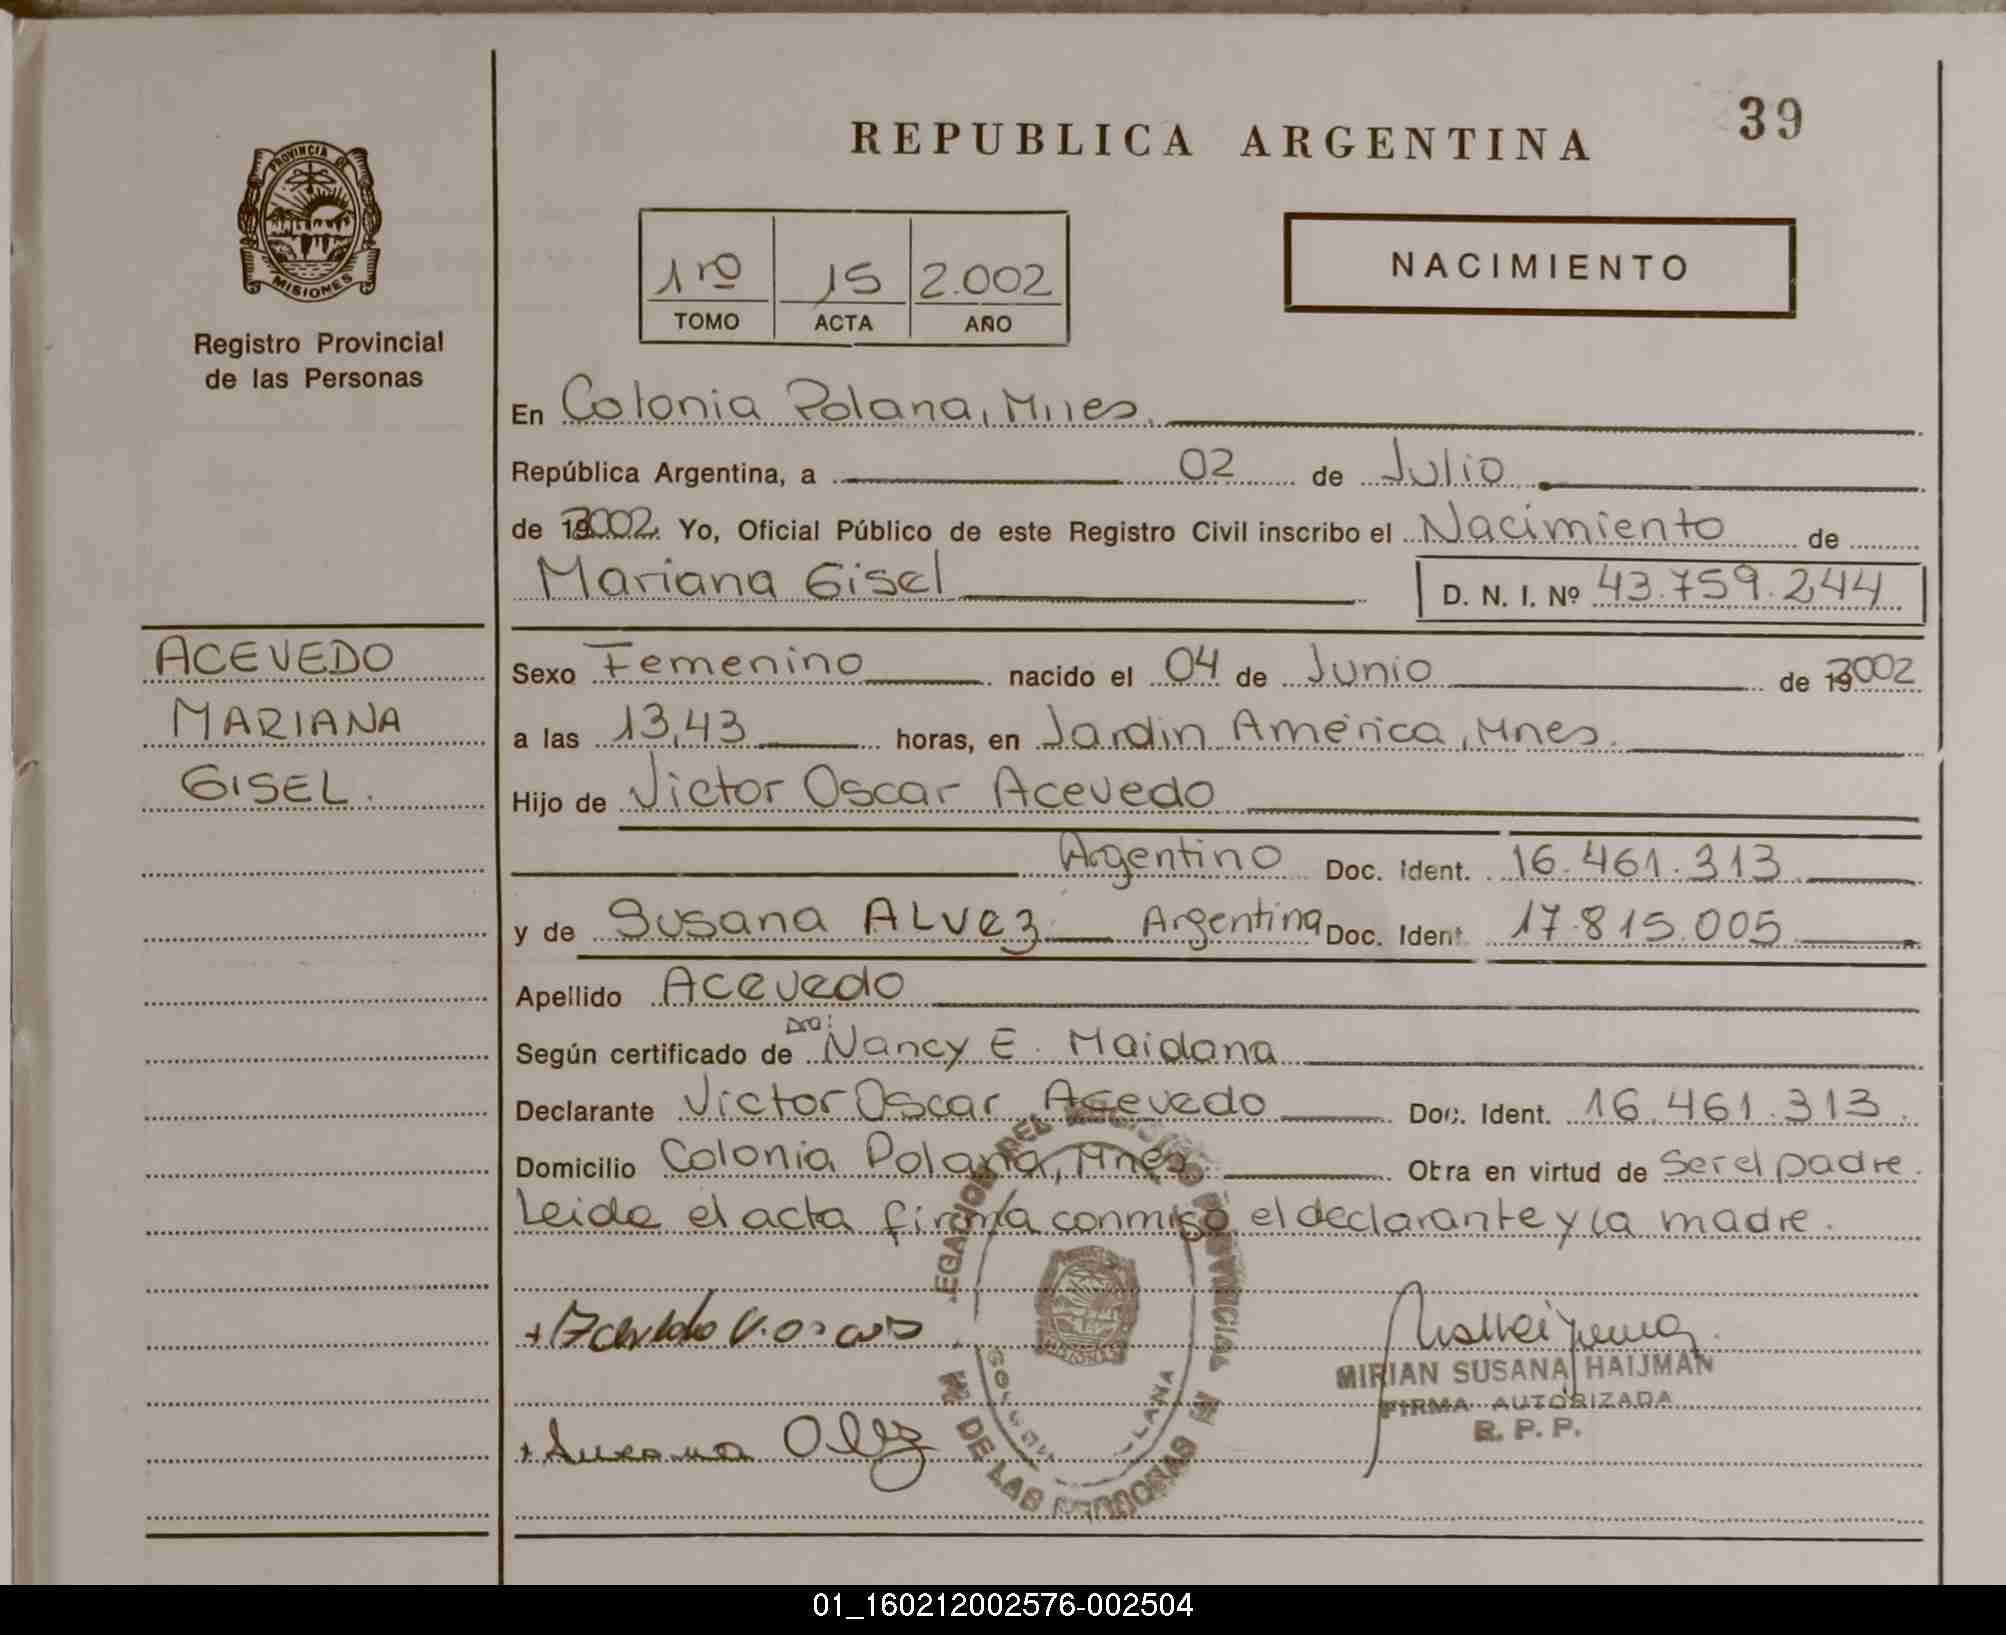 39
REPUBLICA ARGENTINA
PROVINCIA DE
MISIONES
Registro Provincial
de las Personas
1ro 15 2.002
TOMO ACTA AÑO
NACIMIENTO
En Colonia Polana, Mnes.
República Argentina, a 02 de Julio
de 2002. Yo, Oficial Público de este Registro Civil inscribo el Nacimiento de
Mariana Gisel D. N. I. Nº 43.759.244
ACEVEDO
MARIANA
GISEL.
Sexo Femenino nacido el 04 de Junio de 2002
a las 13,43 horas, en Jardin América, Mnes.
Hijo de Victor Oscar Acevedo
Argentino Doc. Ident. 16.461.313
y de Susana ALVez Argentina Doc. Ident. 17.815.005
Apellido Acevedo
Según certificado de Dra: Nancy E. Maidana
Declarante Victor Oscar Acevedo Doc. Ident. 16.461.313.
Domicilio Colonia Polana, Mnes. Obra en virtud de Ser el padre.
Leida el acta firma conmigo el declarante y la madre.
+ Acevedo V. Oscar
MIRIAN SUSANA HAIJMAN
FIRMA AUTORIZADA
R. P. P.
+ Susana Alvez
DELEGACION DEL REGISTRO PROVINCIAL
DE LAS PERSONAS
01_160212002576-002504